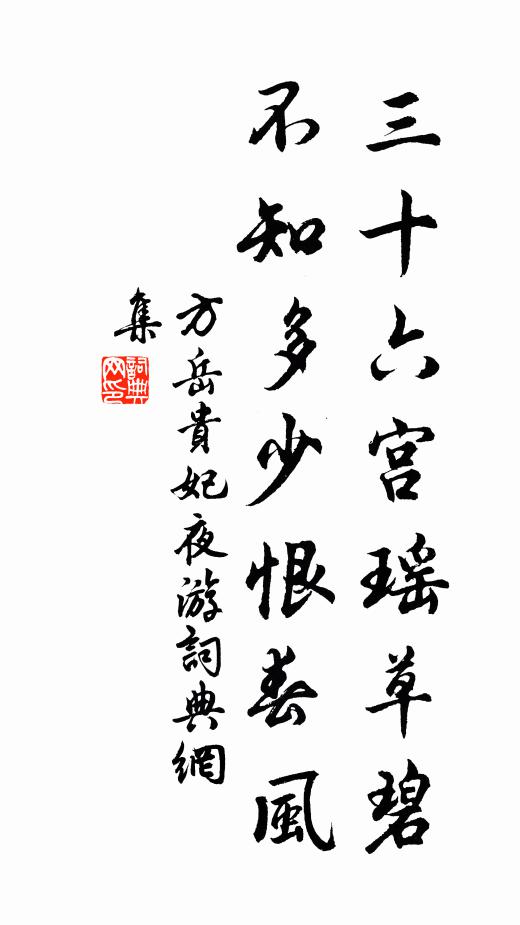 三十六宫瑶草碧
不知多少恨春風
方岳貴妃夜游詞典網
集
詞典
网印